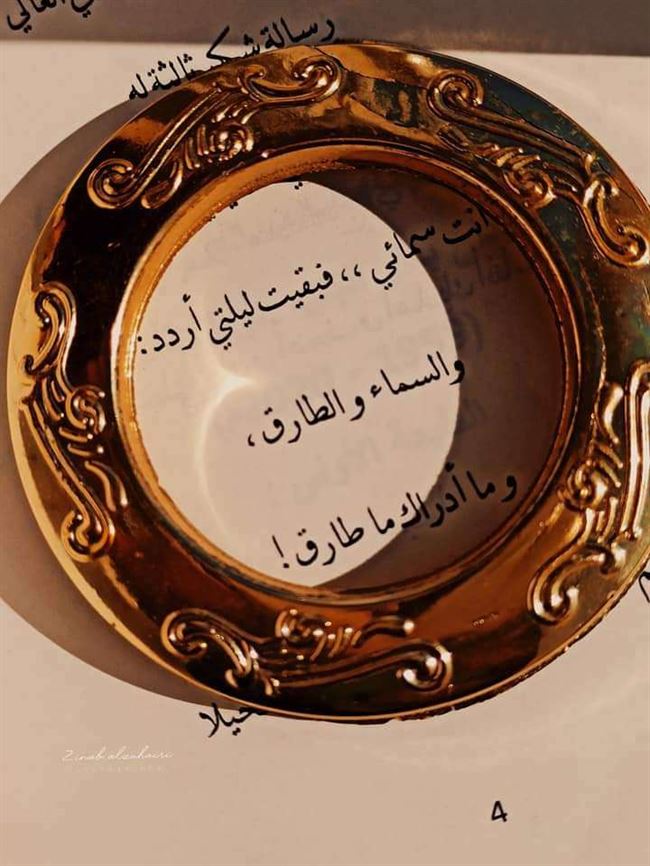 رسالة شكر ثالثة له
أنت سمائي ،، فبقيت ليلتي أردد:
والسماء و الطارق،
و ما أدراك ما طارق!
Zinab alzuhairi
4